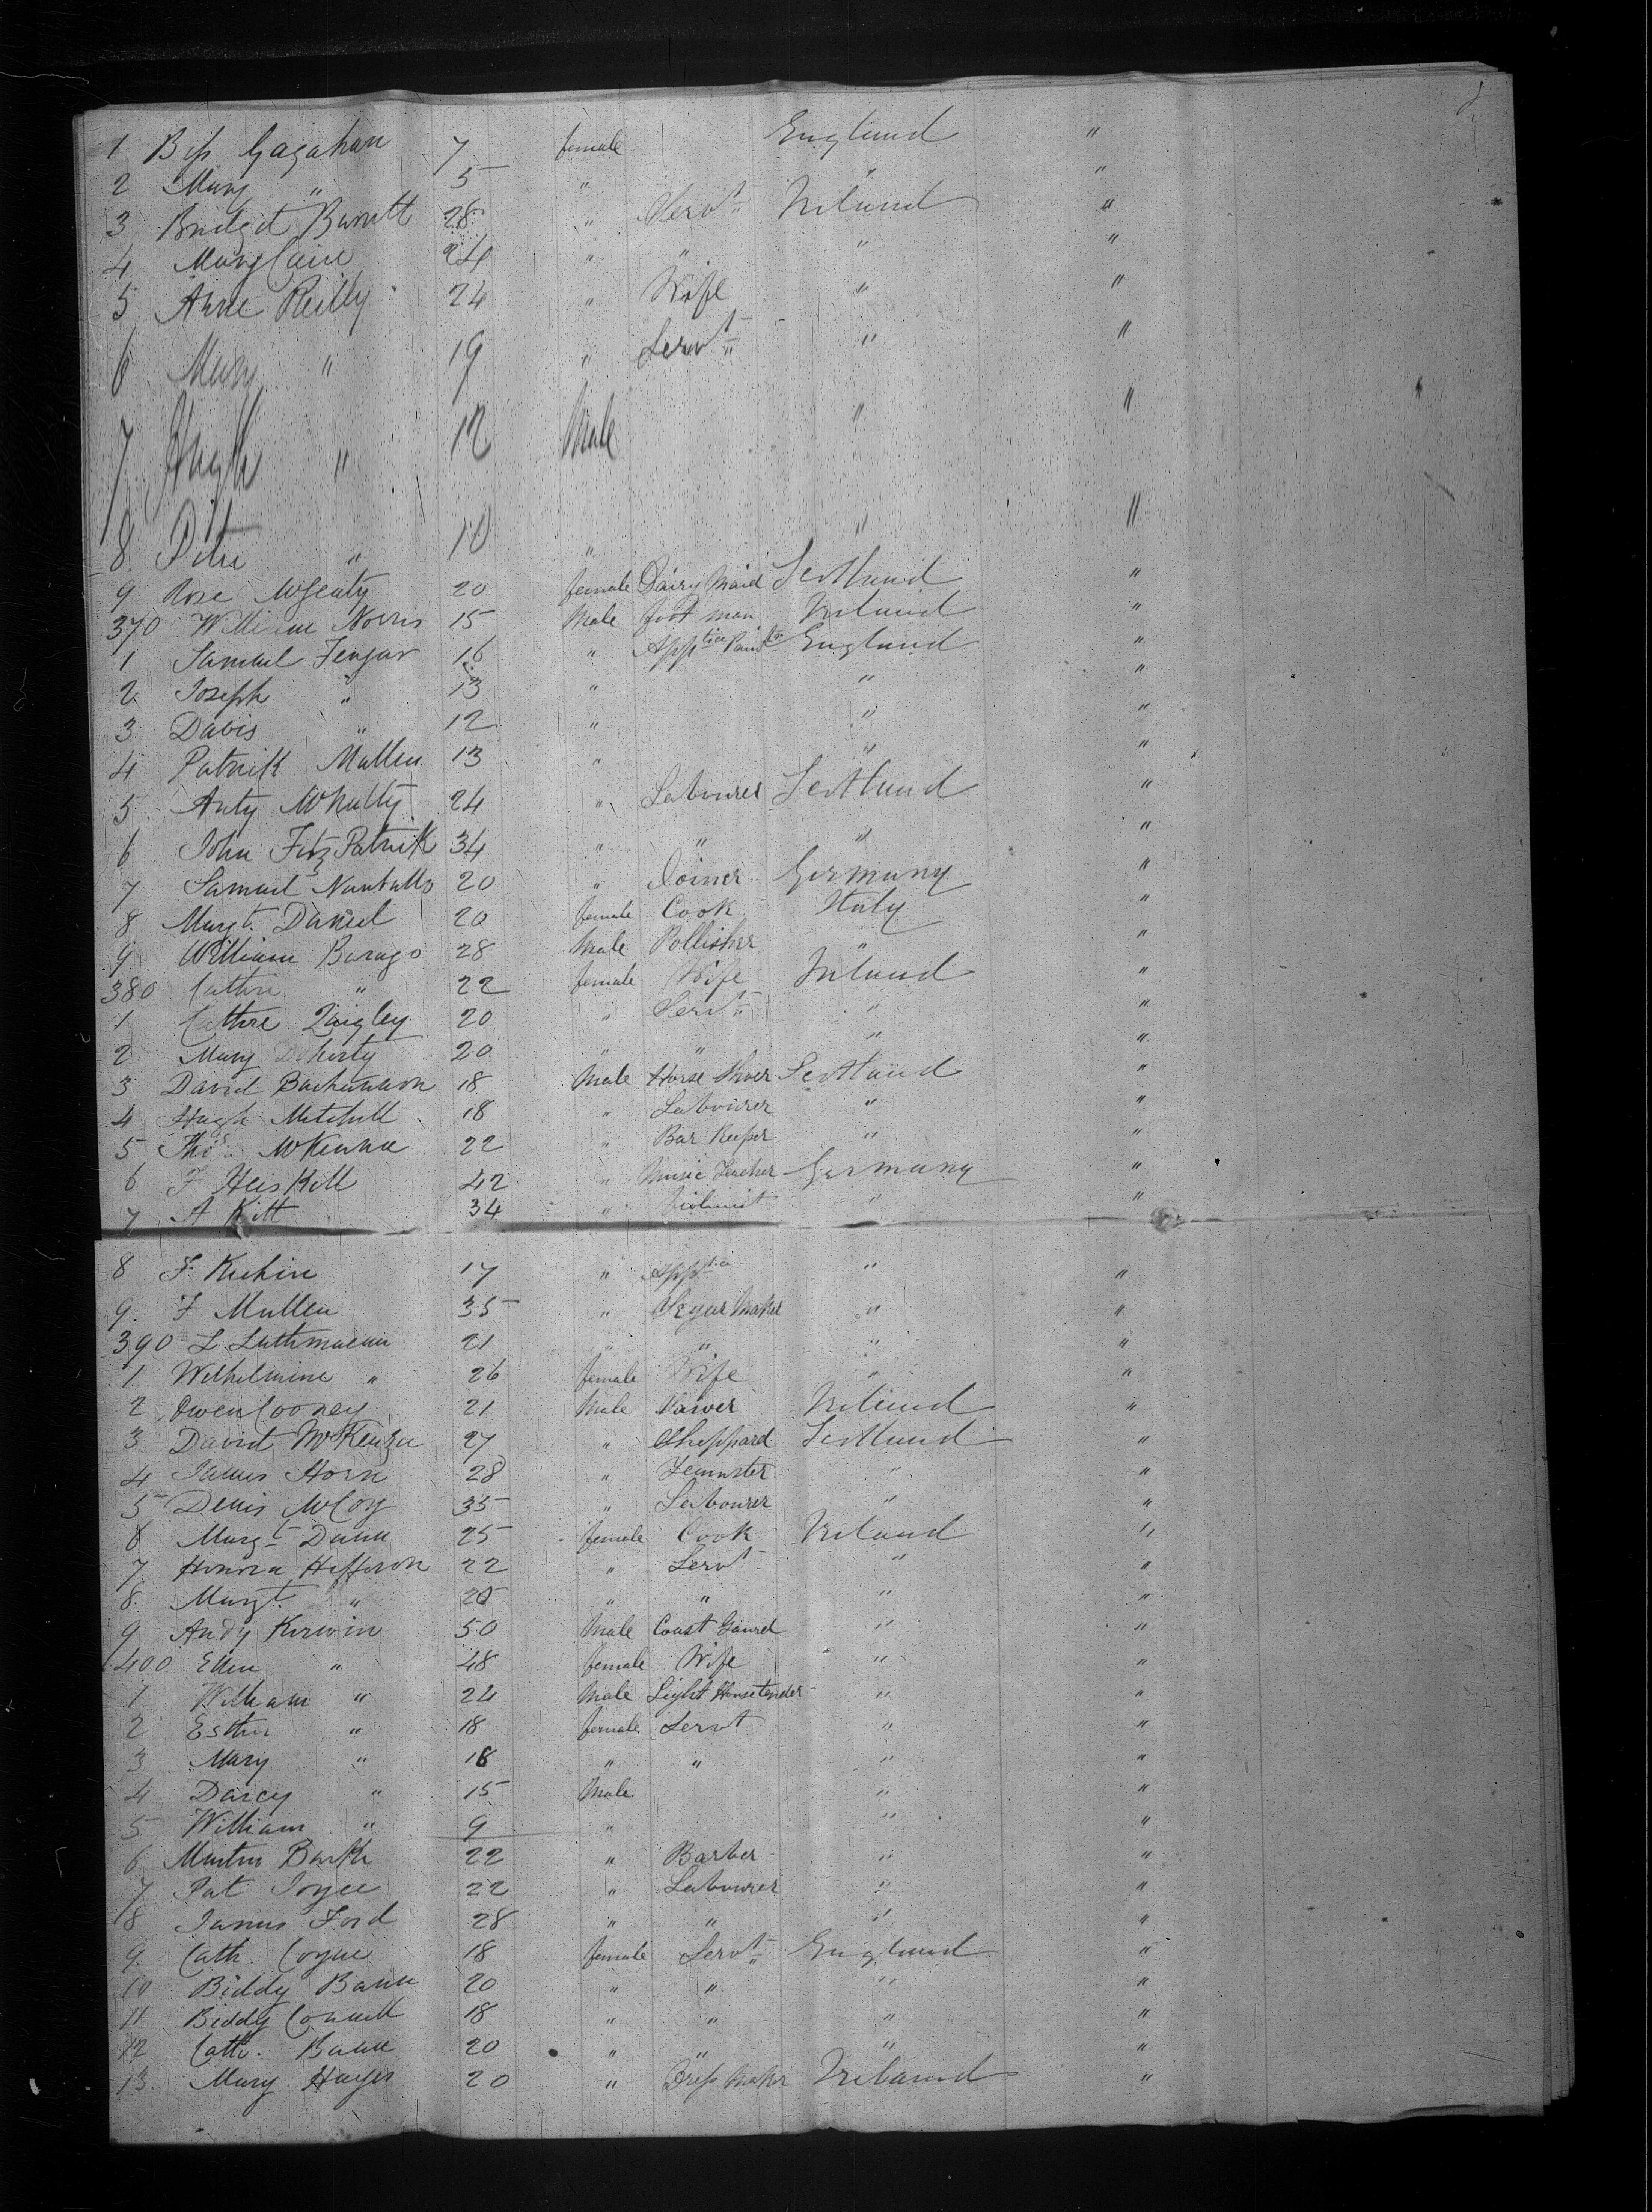 1 Bess Gagahan 7 female England "
2 Mary " 5 " " "
3 Bridget Barrett 28 " Servt Ireland "
4 Mary Cain 24 " " " "
5 Anne Reilly 24 " Wife " "
6 Mary " 19 " Servt " "
7 Hugh " 12 Male " "
8 Peter " 10 " " "
9 Rose McGeaty 20 female Dairy Maid Scotland "
370 William Norris 15 Male foot man Ireland "
1 Samuel 16 " Apptice England "
2 Joseph " 13 " " "
3 Davis " 12 " " "
4 Patrick Mullen 13 " " "
5 Anty McNulty 24 " Labourer Scotland "
6 John FitzPatrick 34 " " " "
7 Samuel 20 " Joiner Germany "
8 Margt. Daniel 20 female Cook Italy "
9 William Barago 28 Male Pollisher " "
380 Cathre " 22 female Wife Ireland "
1 Cathre Quigley 20 " Servt " "
2 Mary Doherty 20 " " " "
3 David Buchannon 18 Male Horse Shoer Scotland "
4 Hugh Mitchell 18 " Labourer " "
5 Thos McKenna 22 " Bar Keeper " "
6 F Heiskell 42 " Music Teacher Germany "
7 A Kitt 34 " Violinist " "
8 F. 17 " Apptice " "
9 F Mullen 35 " Segar Maker " "
390 L Luthmaenn 21 " " " "
1 Wilhelmine " 26 female Wife " "
2 Owen Cooney 21 Male Ireland "
3 David McKenzie 27 " Sheppard Scotland "
4 James Horn 28 " Teamster " "
5 Denis McCoy 35 " Labourer " "
6 Margt Dunn 25 female Cook Ireland "
7 Honora Hefferon 22 " Servt " "
8 Margt. " 25 " " " "
9 Andy Kirwin 50 Male Coast Gaurd " "
400 Ellen " 48 female Wife " "
1 William " 24 Male Light House tender " "
2 Esther " 18 female Servt " "
3 Mary " 18 " " " "
4 Darcy " 15 Male " "
5 William " 9 " " "
6 Martin Burke 22 " Barber " "
7 Pat Joyce 22 " Labourer " "
8 James Ford 28 " " " "
9 Cath. Coyne 18 female Servt England "
10 Biddy Bann 20 " " " "
11 Biddy Connell 18 " " " "
12 Cath. Bann 20 " " " "
13 Mary Hayes 20 " Dress Maker Ireland "